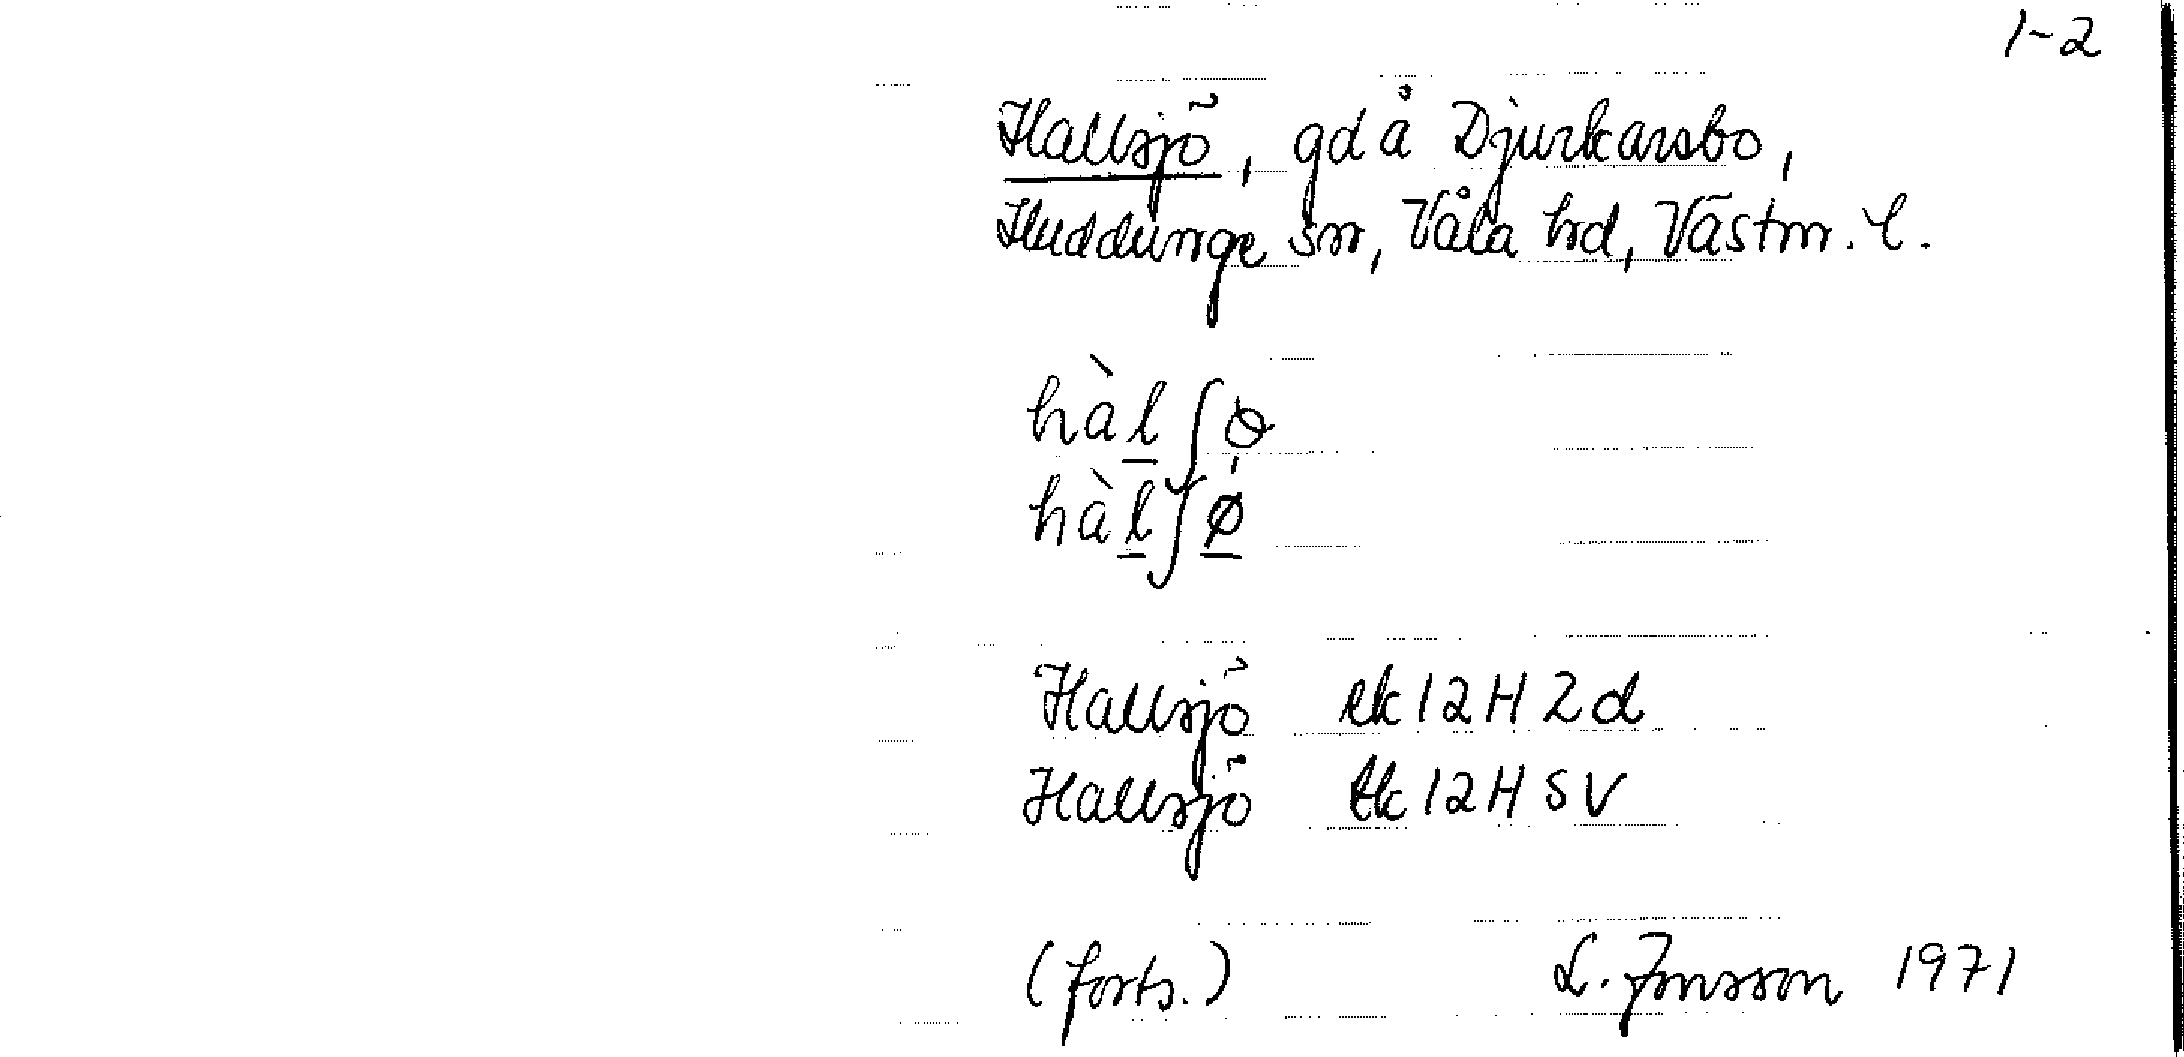 1-2
Hallsjö, gd å Djurkarsbo,
Huddunge sn, Våla hd, Västm. l.
hàl̲ʃø
hàl̲ʃø̲
Hallsjö ek 12H 2d
Hallsjö tk 12H SV
(forts.) L. Jonsson 1971